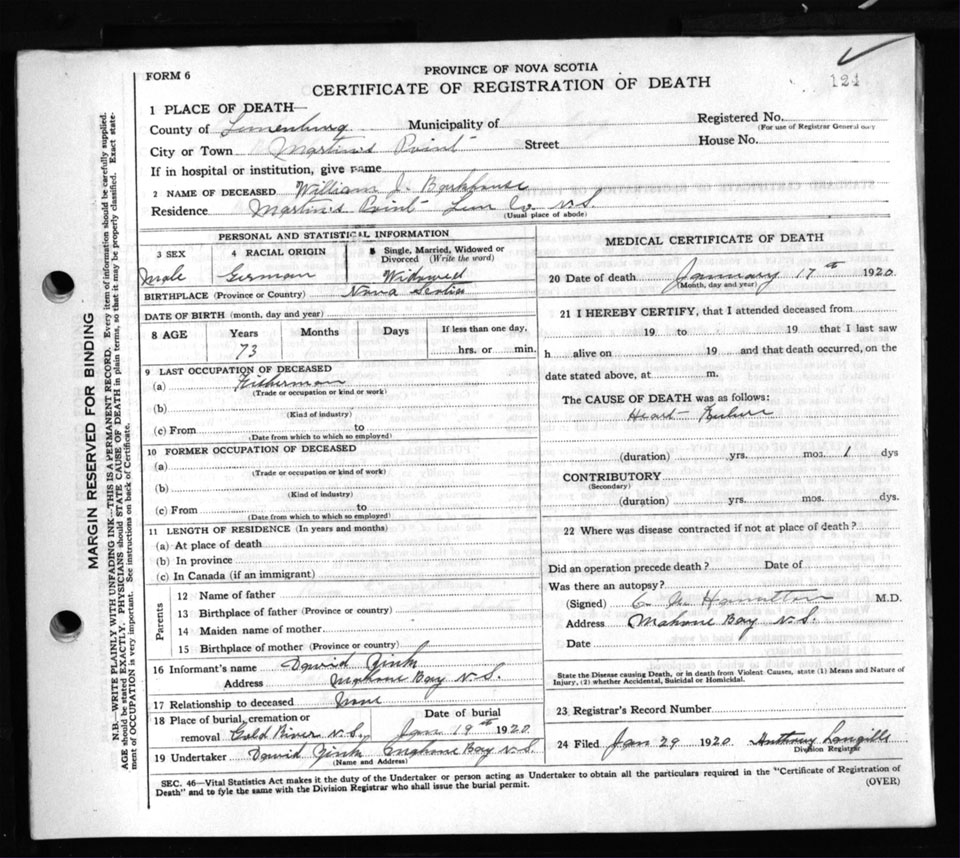 FORM 6
PROVINCE OF NOVA SCOTIA
CERTIFICATE OF REGISTRATION OF DEATH
124
1 PLACE OF DEATH—
County of Lunenburg Municipality of Registered No.
(For use of Registrar General only)
City or Town Martins Point Street House No.
If in hospital or institution, give name
2 NAME OF DECEASED William J. Barkhouse
Residence Martins Point Lun Co. N.S.
(Usual place of abode)
PERSONAL AND STATISTICAL INFORMATION
3 SEX 4 RACIAL ORIGIN 5 Single, Married, Widowed or Divorced (Write the word)
Male German Widowed
BIRTHPLACE (Province or Country) Nova Scotia
DATE OF BIRTH (month, day and year)
8 AGE Years Months Days If less than one day,
73 hrs. or min.
9 LAST OCCUPATION OF DECEASED
(a) Fisherman
(Trade or occupation or kind or work)
(b)
(Kind of industry)
(c) From to
(Date from which to which so employed)
10 FORMER OCCUPATION OF DECEASED
(a)
(Trade or occupation or kind of work)
(b)
(Kind of industry)
(c) From to
(Date from which to which so employed)
11 LENGTH OF RESIDENCE (In years and months)
(a) At place of death
(b) In province
(c) In Canada (if an immigrant)
Parents
12 Name of father
13 Birthplace of father (Province or country)
14 Maiden name of mother
15 Birthplace of mother (Province or country)
16 Informant's name David Zink
Address Mahone Bay N.S.
17 Relationship to deceased None
18 Place of burial, cremation or removal Gold River N.S. Date of burial Jan 19th 1920
19 Undertaker David Zink Mahone Bay N.S.
(Name and Address)
MEDICAL CERTIFICATE OF DEATH
20 Date of death January 17th 1920
(Month, day and year)
21 I HEREBY CERTIFY, that I attended deceased from
19 to 19 that I last saw
h alive on 19 and that death occurred, on the
date stated above, at m.
The CAUSE OF DEATH was as follows:
Heart Failure
(duration) yrs. mos. 1 dys
CONTRIBUTORY
(Secondary)
(duration) yrs. mos. dys.
22 Where was disease contracted if not at place of death?
Did an operation precede death? Date of
Was there an autopsy?
(Signed) Hamilton M.D.
Address Mahone Bay N.S.
Date
State the Disease causing Death, or in death from Violent Causes, state (1) Means and Nature of
Injury, (2) whether Accidental, Suicidal or Homicidal.
23 Registrar's Record Number
24 Filed Jan 29 1920 Anthony Langille
Division Registrar
SEC. 46—Vital Statistics Act makes it the duty of the Undertaker or person acting as Undertaker to obtain all the particulars required in the "Certificate of Registration of
Death" and to fyle the same with the Division Registrar who shall issue the burial permit.
(OVER)
MARGIN RESERVED FOR BINDING
N.B.—WRITE PLAINLY WITH UNFADING INK—THIS IS A PERMANENT RECORD. Every item of information should be carefully supplied.
AGE should be stated EXACTLY. PHYSICIANS should STATE CAUSE OF DEATH in plain terms, so that it may be properly classified. Exact state-
ment of OCCUPATION is very important. See instructions on back of Certificate.